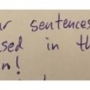 sentences
used in th
n!